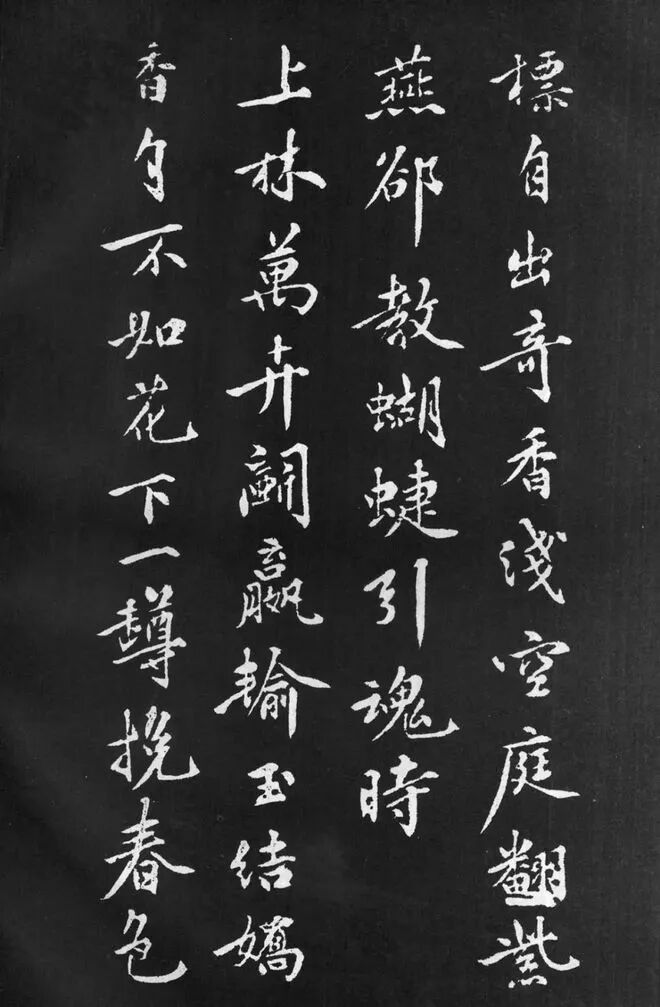 標自出奇香淺空庭翻紫
燕卻教蝴蝶引魂時
上林萬卉鬭贏輸玉結嬌
香自不如花下一罇挽春色